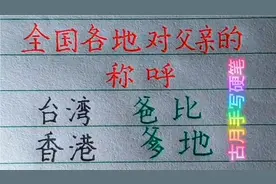 全国各地对父亲的
称呼
台湾 爸比
香港 爹地
古月手写硬笔